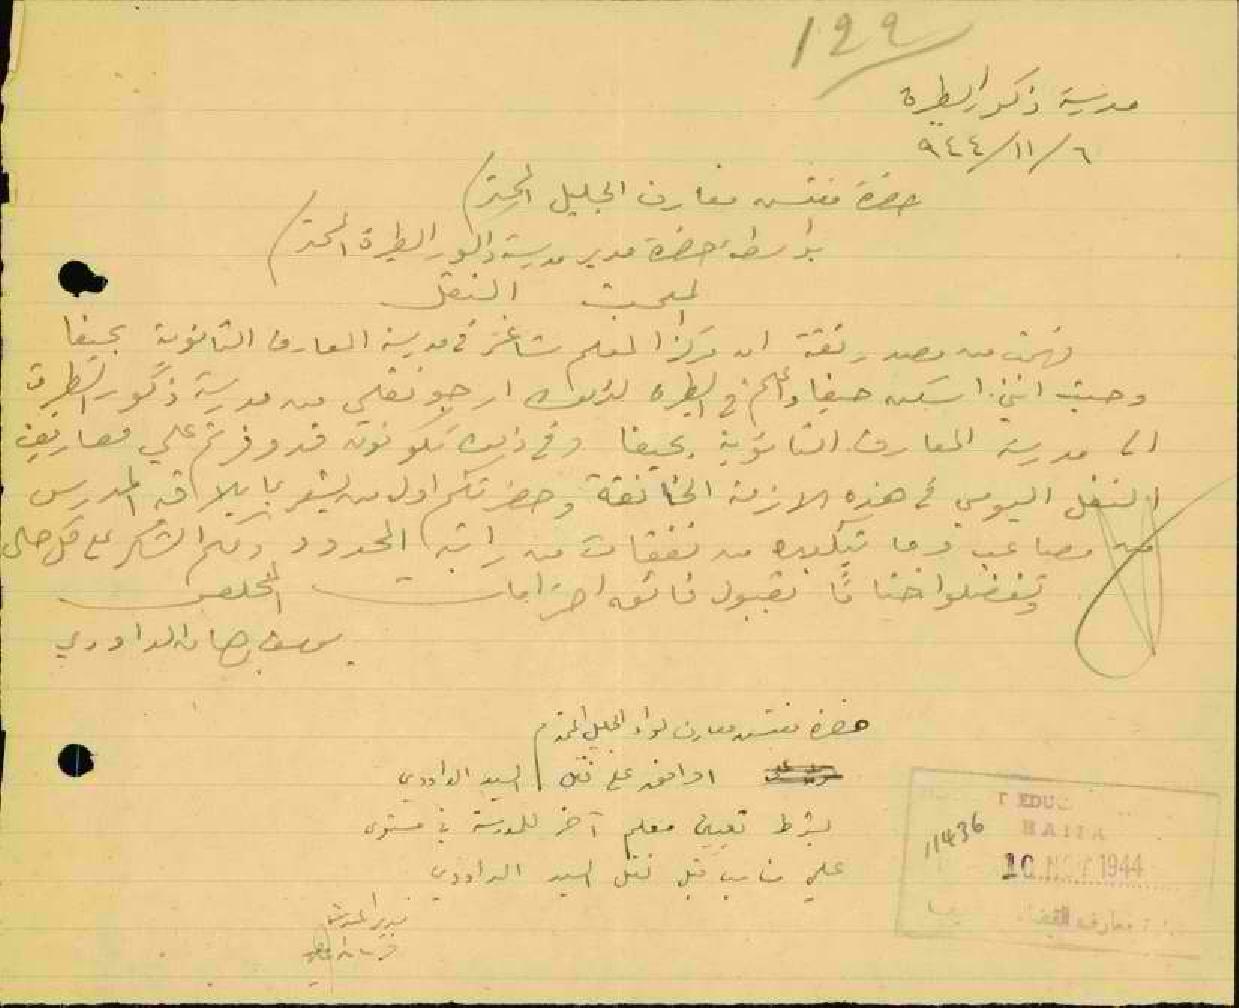 ١٩٩
مدرسة ذكور الطيرة
٦/١١/٩٤٤
حضرة مفتش معارف الجليل المحترم
بواسطة حضرة مدير مدرسة ذكور الطيرة المحترم
المبحث النقل
فهمت من مصدر ثقة ان مركزا لمعلم شاغر في مدرسة المعارف الثانوية بحيفا
وحيث انني اسكن حيفا واعلم في الطيره لذلك ارجو نقلي من مدرسة ذكور الطيرة
الى مدرسة المعارف الثانوية بحيفا وفي ذلك تكونون قد وفرتم علي مصاريف
النقل اليومي في هذه الازمة الخانقة وحضرتكم اول من يشعر بما يلاقه المدرس
من مصاعب وما يتكبده من نفقات من راتبه المحدود ولكم الشكر على كل حال
وتفضلوا ختاما بقبول فائق احتراماتي المخلص
الداودي
حضرة مفتش معارف لواء الجليل المحترم
اوافق على نقل السيد الداودي
بشرط تعيين معلم آخر للمدرسة في مستوى
علمي مناسب قبل نقل السيد الداودي
مدير المدرسة
T EDUC
HAIFA
11436
10 NOV 1944
معارف القضاء حيفا